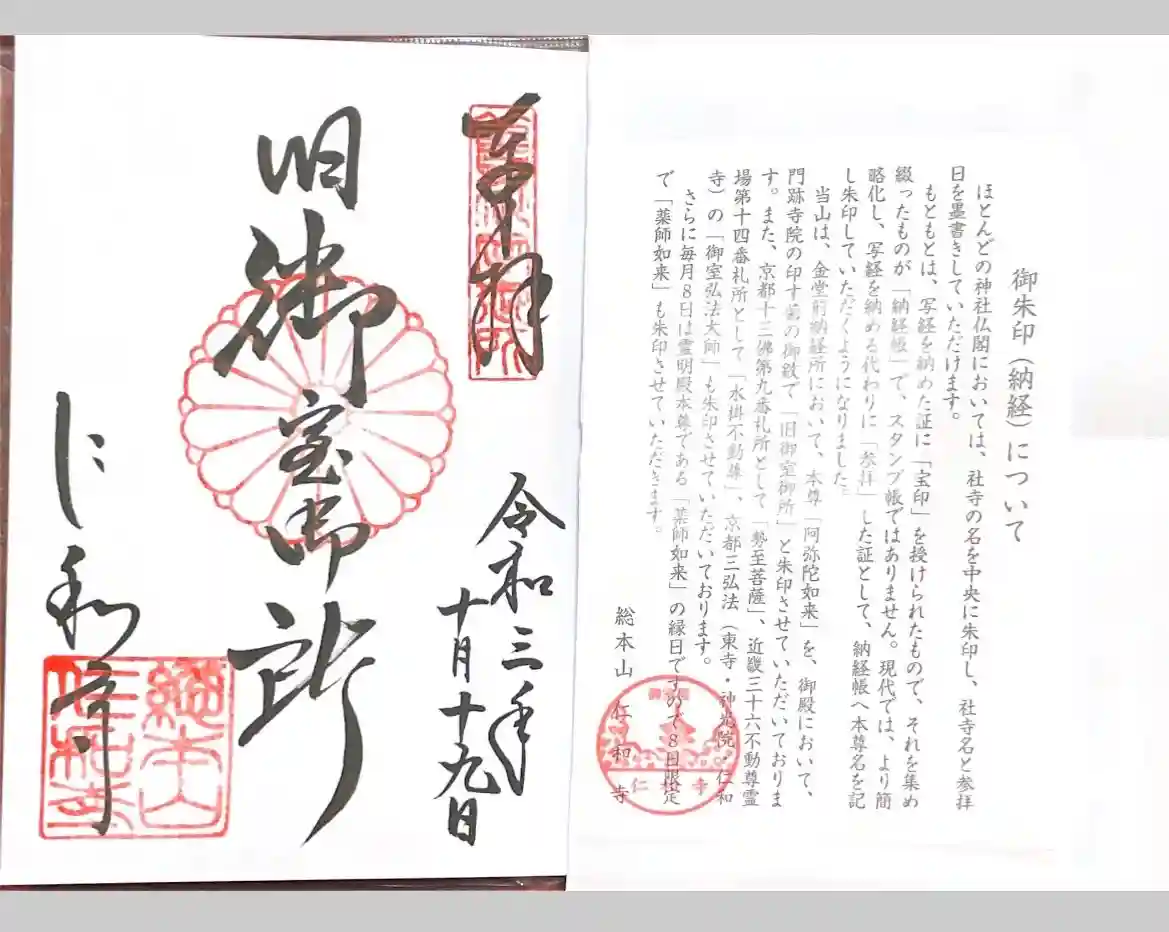 御朱印(納経)について
ほとんどの神社仏閣においては、社寺の名を中央に朱印し、社寺名と参拝
日を墨書きしていただけます。
もともとは、写経を納めた証に「宝印」を授けられたもので、それを集め
綴ったものが「納経帳」で、スタンプ帳ではありません。現代では、より簡
略化し、写経を納める代わりに「参拝」した証として、納経帳へ本尊名を記
し朱印していただくようになりました。
当山は、金堂前納経所において、本尊「阿弥陀如来」を、御殿において、
門跡寺院の印す菊の御紋で「旧御室御所」と朱印させていただいておりま
す。また、京都十三佛第九番札所として「勢至菩薩」、近畿三十六不動尊霊
場第十四番札所として「水掛不動尊」、京都三弘法(東寺・神光院・仁和
寺)の「御室弘法大師」も朱印させていただいております。
さらに毎月8日は霊明殿本尊である「薬師如来」の縁日ですので8日限定
で「薬師如来」も朱印させていただきます。
総本山 仁和寺
仁 寺
奉拝
令和三年
十月十九日
旧御室御所
仁和寺
總本山
仁和寺